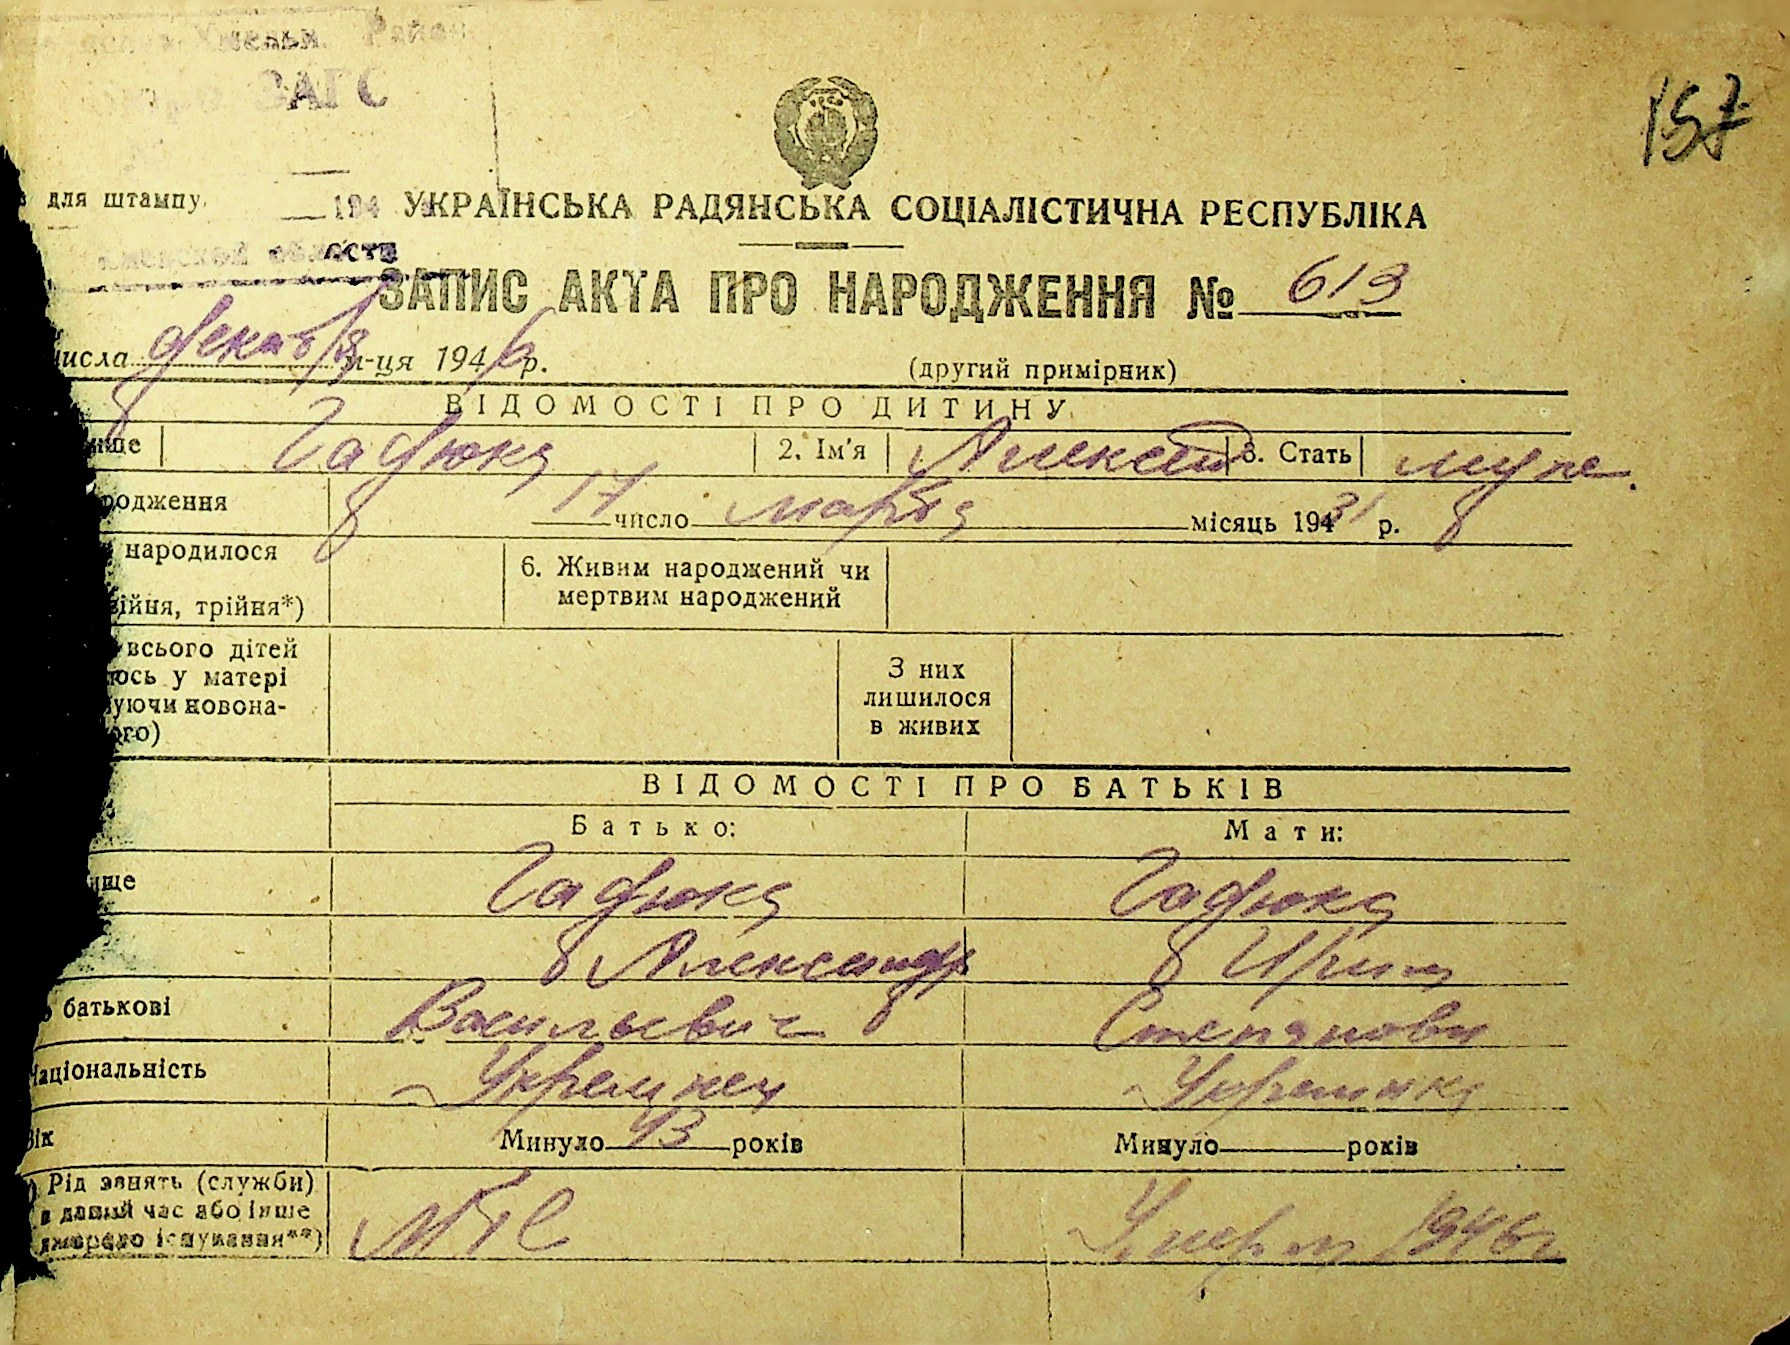 Район
ЗАГС
157
для штампу
194
УКРАЇНСЬКА РАДЯНСЬКА СОЦІАЛІСТИЧНА РЕСПУБЛІКА
ЗАПИС АКТА ПРО НАРОДЖЕННЯ № 613
числа декабря м-ця 1946 р.
(другий примірник)
ВІДОМОСТІ ПРО ДИТИНУ
ище Гадюка 2. Ім'я Алексей 3. Стать муж.
родження 17 число марта місяць 1931 р.
народилося
ійня, трійня*)
6. Живим народжений чи
мертвим народжений
всього дітей
лось у матері
уючи новона-
ого)
З них
лишилося
в живих
ВІДОМОСТІ ПРО БАТЬКІВ
Батько: Мати:
ище Гадюка Гадюка
Александр Ирина
батькові Васильевич Степановн
Національність Украинец Украинка
Вік Минуло 43 років Минуло років
Рід занять (служби)
в даний час або інше
джерело існування**)
МТС Умерла 1946 г